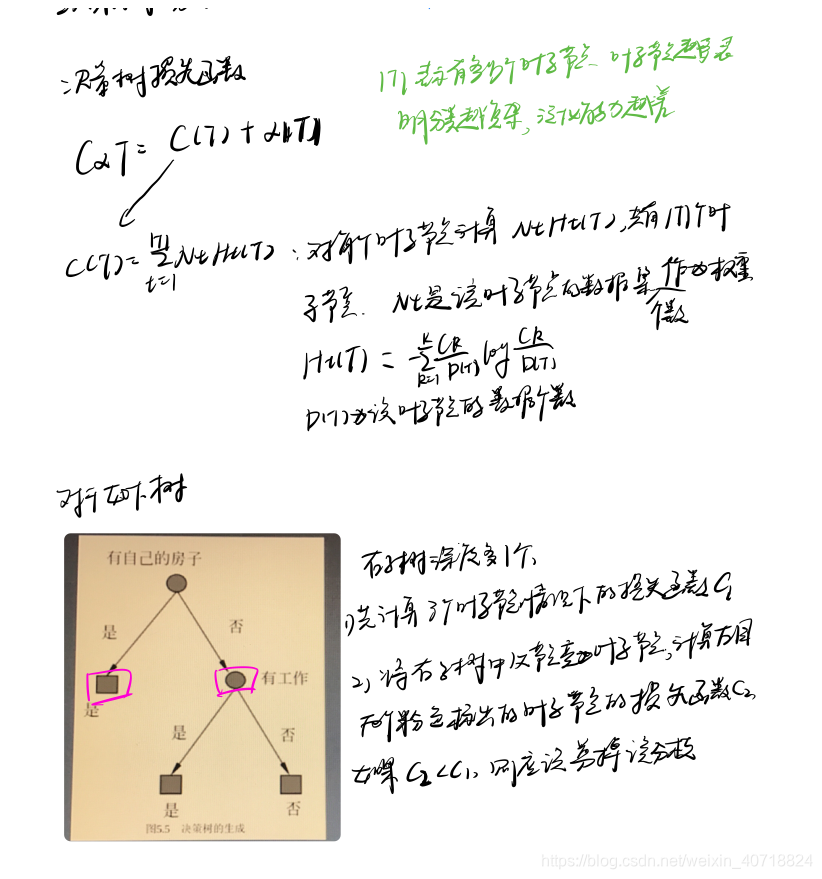 决策树损失函数
|T|表示有多少个叶子节点、叶子节点越多表
明分类越复杂,泛化能力越差
CαT = C(T) + α|T|
C(T) = Σ t=1 |T| Nt Ht(T) : 对每个叶子节点计算 Nt Ht(T), 共有|T|个叶
子节点. Nt是该叶子节点的数据集 作为权重
个数
Ht(T) = Σ k=1 K Ck/D(T) log Ck/D(T)
D(T)为该叶子节点的数据个数
对于如下树
有自己的房子
是 否
有工作
是
是 否
是 否
图5.5 决策树的生成
右子树深度多1个,
1)先计算3个叶子节点情况下的损失函数C1
2)将右子树中父节点变为叶子节点,计算有
两个粉色标出的叶子节点的损失函数C2,
如果 C2<C1, 则应该剪掉该分枝
https://blog.csdn.net/weixin_40718824